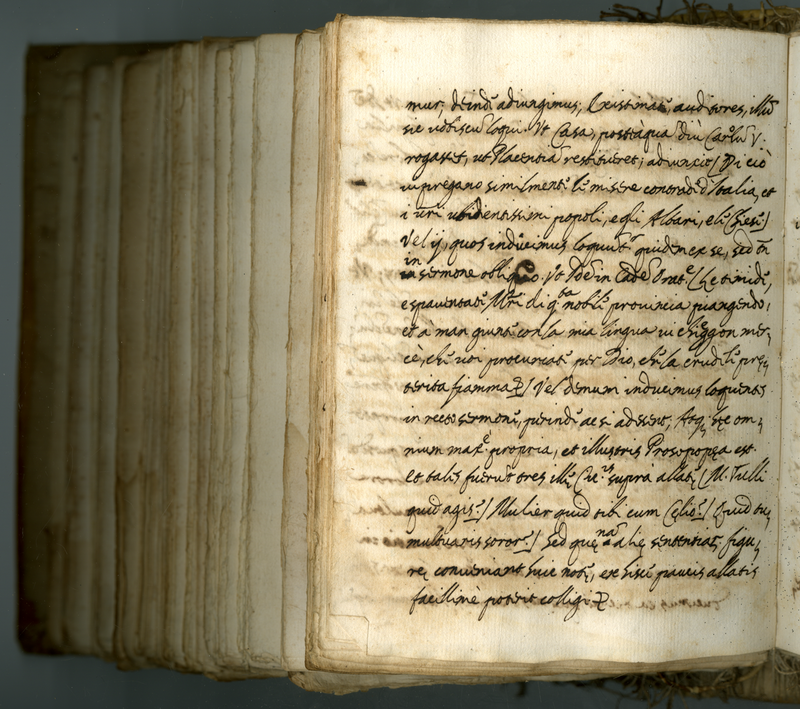 mur. deindè adiungimus, Existimate, auditores, illũ
sic vobiscũ loqui. Ut Casa, postèaquã diù Carlũ V.
rogasset, ut Placentiã restitueret; adiuncit / Di ciò
vi pregano similmente le misere contrade d'Italia, et
i vri ubidentissimi popoli, e gli Altari, e le Chiese /
Vel ij, quos inducimus loquuntr quidem ex se, sed tñ
in sermone obliquo. Ut Idẽ in eadẽ Orate / Che timide,
e spaventate Mri di qta nobile provincia piangendo,
et à man giunte con la mia lingua vi cheggon mer,
cè, che voi procuriate per Dio, che la crudele pre,
terita fiamma / Vel demum inducimus loquentes
in recto sermone, perindè ac si adsent, Atq; hęc om,
nium maxe propria, et illustris Prosopopęa est.
et talis fuerut tres illę Cic.nis suprà allatę / M. Tulli
quid agis? / Mulier quid tibi cum Celio? / Quid tu,
multuaris soror? / Sed quęnã alię sententiaȝ figu,
rę conveniant huic notę, ex hisce paucis allatis
facillimè poterit colligi